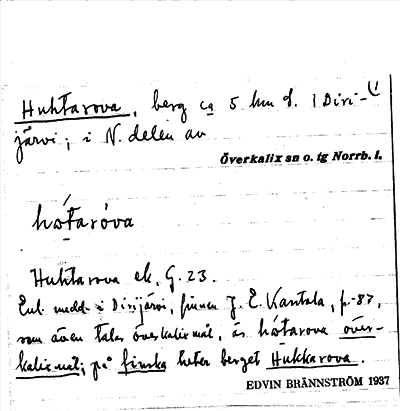 Huhtarova, berg ca 5 km S. I Diri-
järvi; i N. delen av
Överkalix sn o. tg Norrb. l.
hótaròva
Huhtarova ek. G. 23.
Enl. medd. i Dirijärvi, finnen J. E. Kantola, f. -87,
som även talar överkalixmål, är hótarova över-
kalixmål; på finska heter berget Hukkarova.
EDVIN BRÄNNSTRÖM 1937